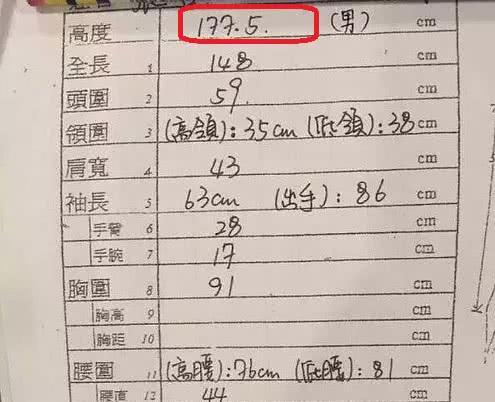 高度 177.5. (男) cm
全長 1 148 cm
頭圍 2 59. cm
領圍 3 (高領): 35cm (低領): 38 cm
肩寬 4 43 cm
袖長 5 63cm (出手): 86 cm
手臂 6 28 cm
手腕 7 17 cm
胸圍 8 91 cm
胸高 9 cm
胸距 10 cm
腰圍 11 (高腰): 76cm (低腰): 81 cm
腰直 12 44 cm